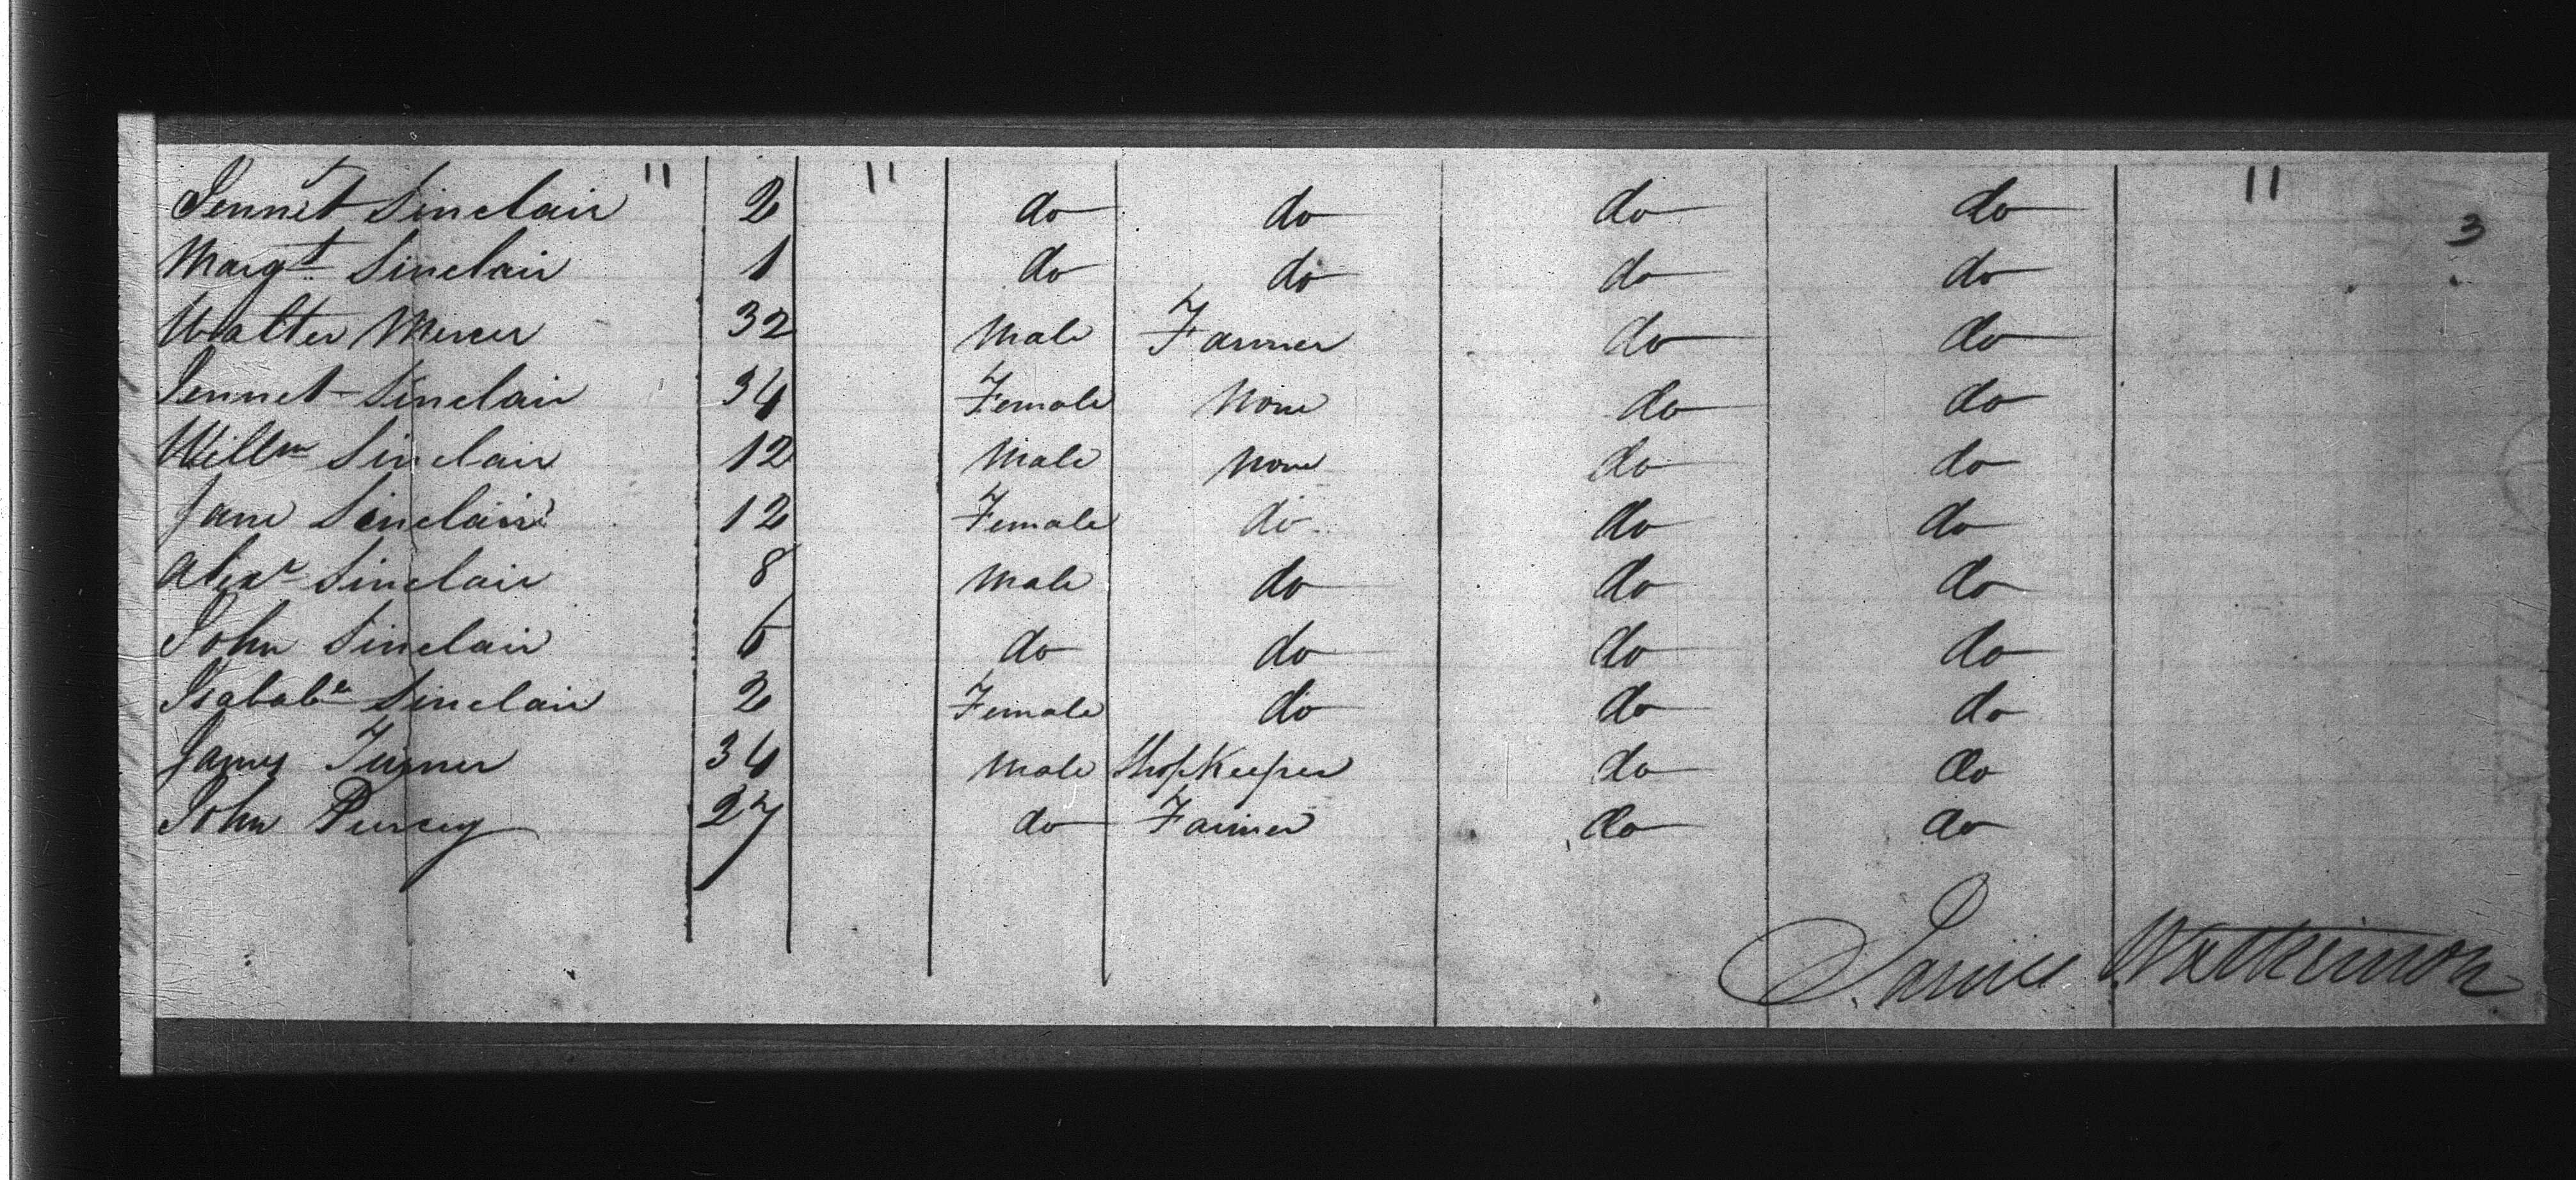 Jennet Sinclair " 2 " do do do do "
3
Margt Sinclair 1 do do do do
Walter Mercer 32 Male Farmer do do
Jennet Sinclair 34 Female None do do
Willm Sinclair 12 Male None do do
Jane Sinclair 12 Female do do do
Alexr Sinclair 8 Male do do do
John Sinclair 6 do do do do
Isabale Sinclair 2 Female do do do
James Turner 34 Male ShopKeeper do do
John Pursey 27 do Farmer do do
James Watkinson